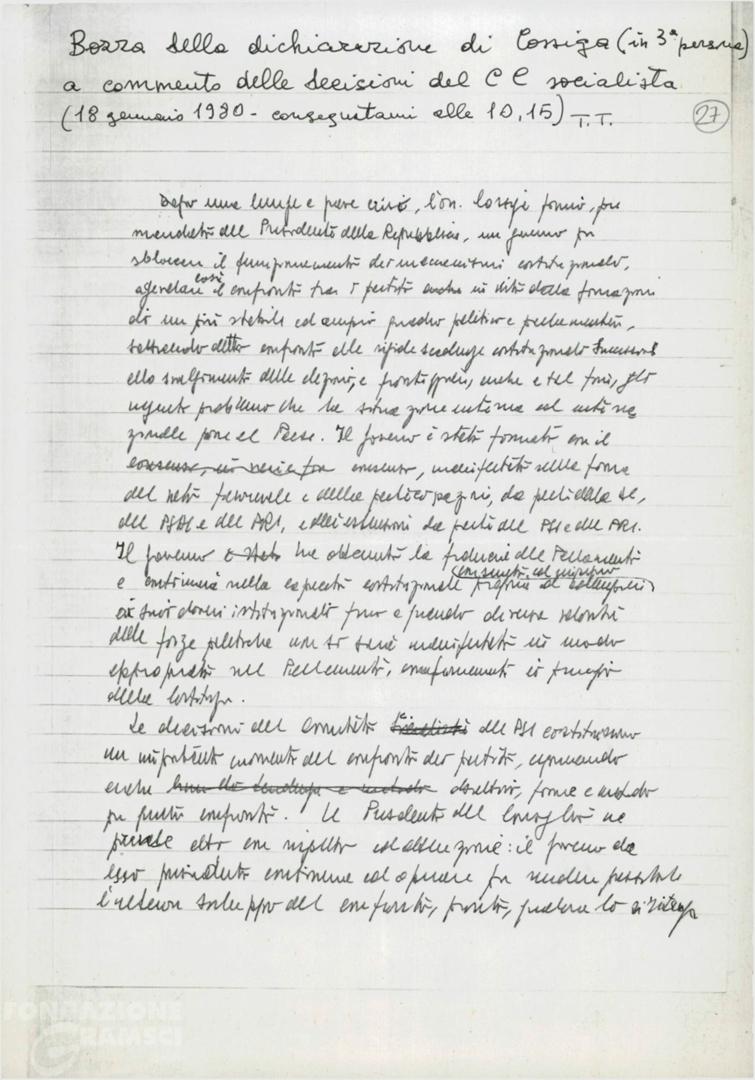 Bozza della dichiarazione di Cossiga (in 3ª persona)
a commento delle decisioni del CC socialista
(18 gennaio 1980 - consegnatami alle 10,15) T.T.
27
Dopo una lunga e grave crisi, l'on. Cossiga formò, su
mandato del Presidente della Repubblica, un governo per
sbloccare il funzionamento dei meccanismi costituzionali,
agevolare così il confronto tra i partiti anche in vista della formazione
di un più stabile ed ampio quadro politico e parlamentare,
sottraendo detto confronto alle rigide scadenze costituzionali
allo svolgimento delle elezioni, e fronteggiare, anche a tal fine, gli
urgenti problemi che la situazione interna ed interna
zionale pone al Paese. Il governo è stato formato con il
consenso, manifestato nella forma
del voto favorevole e della partecipazione, da parte della DC,
del PSDI e del PLI, e dell'astensione da parte del PSI e del PRI.
Il governo è stato ha ottenuto la fiducia del Parlamento
e continuerà nella capacità costituzionale
ai suoi doveri istituzionali fino a quando diversa volontà
delle forze politiche non si sarà manifestata in modo
appropriato nel Parlamento, conformemente ai principi
della Costituzione.
Le decisioni del Comitato del PSI costituiscono
un importante momento del confronto dei partiti, esprimendo
anche obiettivi, forme e metodo
per questo confronto. Il Presidente del Consiglio ne
prende atto con rispetto ed attenzione: il governo da
esso presieduto continuerà ad operare per rendere possibile
l'ulteriore sviluppo del confronto, pronto, qualora lo si ritenga
FONDAZIONE
GRAMSCI